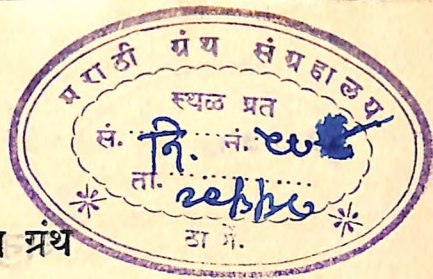 मराठी ग्रंथ संग्रहालय
स्थळ प्रत
सं. नि. नं.
ता.
ठा णें.
ग्रंथ